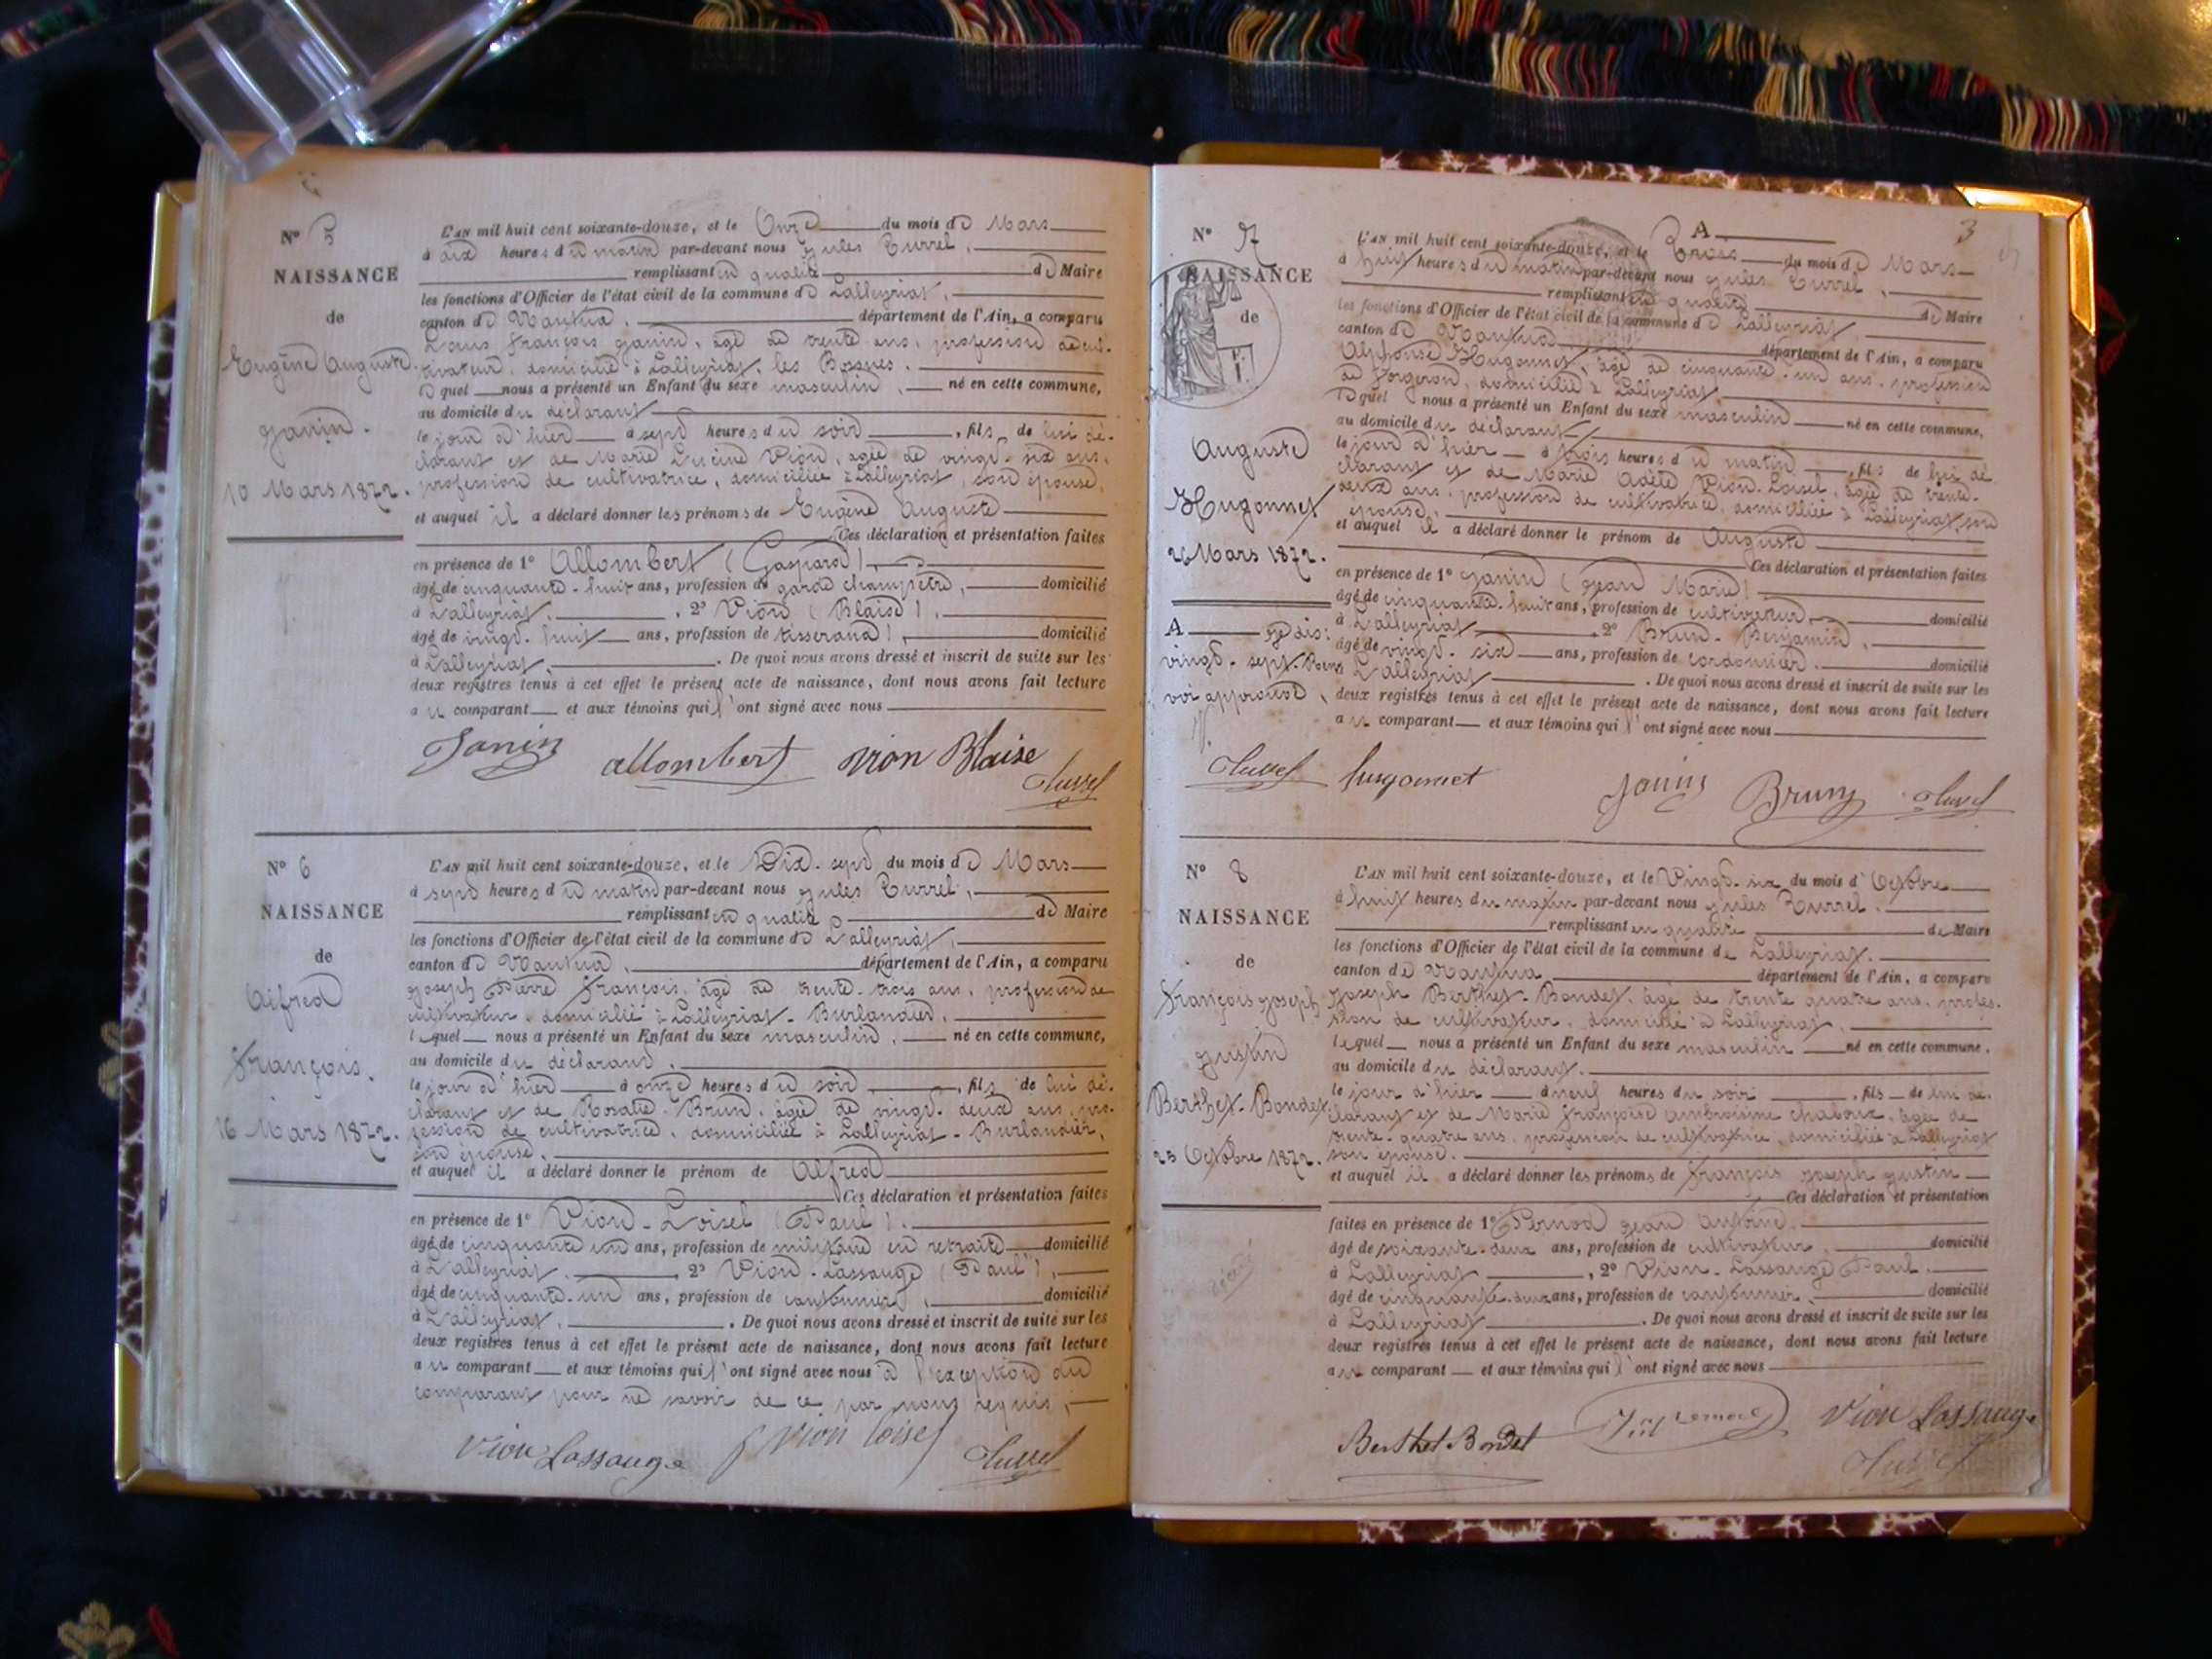 Nº 5
NAISSANCE
de
Eugène Auguste
Janin.
10 Mars 1872.
L'AN mil huit cent soixante-douze, et le Onze du mois de Mars
à dix heures du matin par-devant nous Jules Turrel,
remplissant en qualité de Maire
les fonctions d'Officier de l'état civil de la commune de Lalleyriat,
canton de Nantua, département de l'Ain, a comparu
Louis François Janin, âgé de trente ans, profession de cul-
tivateur, domicilié à Lalleyriat, les
lequel nous a présenté un Enfant du sexe masculin, né en cette commune,
au domicile du déclarant
le jour d'hier à sept heures du soir, fils de lui dé-
clarant et de Marie Lucine Vion, âgée de vingt-six ans,
profession de cultivatrice, domiciliée à Lalleyriat, son épouse,
et auquel il a déclaré donner les prénoms de Eugène Auguste
Ces déclaration et présentation faites
en présence de 1º Allombert (Gaspard),
âgé de cinquante-huit ans, profession de garde champêtre, domicilié
à Lalleyriat, 2º Vion (Blaise),
âgé de vingt-huit ans, profession de tisserand, domicilié
à Lalleyriat. De quoi nous avons dressé et inscrit de suite sur les
deux registres tenus à cet effet le présent acte de naissance, dont nous avons fait lecture
au comparant et aux témoins qui l'ont signé avec nous
Janin allombert vion Blaise JTurrel
Nº 6
NAISSANCE
de
Alfred
François.
16 Mars 1872.
L'AN mil huit cent soixante-douze, et le Dix-sept du mois de Mars
à sept heures du matin par-devant nous Jules Turrel,
remplissant en qualité de Maire
les fonctions d'Officier de l'état civil de la commune de Lalleyriat,
canton de Nantua, département de l'Ain, a comparu
Joseph Pierre François, âgé de trente-trois ans, profession de
cultivateur, domicilié à Lalleyriat-Burlandier,
lequel nous a présenté un Enfant du sexe masculin, né en cette commune,
au domicile du déclarant,
le jour d'hier à onze heures du soir, fils de lui dé-
clarant et de Rosalie Brun, âgée de vingt-deux ans, pro-
fession de cultivatrice, domiciliée à Lalleyriat-Burlandier,
son épouse,
et auquel il a déclaré donner le prénom de Alfred
Ces déclaration et présentation faites
en présence de 1º Vion-Loisel (Paul),
âgé de cinquante un ans, profession de militaire en retraite domicilié
à Lalleyriat, 2º Vion-Lassauge (Paul),
âgé de cinquante-un ans, profession de cantonnier, domicilié
à Lalleyriat. De quoi nous avons dressé et inscrit de suite sur les
deux registres tenus à cet effet le présent acte de naissance, dont nous avons fait lecture
au comparant et aux témoins qui l'ont signé avec nous à l'exception du
comparant pour ne savoir de ce par nous requis,
Vion Lassauge P Vion loisel JTurrel
A 3
Nº 7
NAISSANCE
de
Auguste
Hugonnet
2 Mars 1872.
L'AN mil huit cent soixante-douze, et le Trois du mois de Mars
à huit heures du matin par-devant nous Jules Turrel,
remplissant en qualité de Maire
les fonctions d'Officier de l'état civil de la commune de Lalleyriat
canton de Nantua département de l'Ain, a comparu
Alphonse Hugonnet, âgé de cinquante-un ans, profession
de forgeron, domicilié à Lalleyriat,
lequel nous a présenté un Enfant du sexe masculin né en cette commune,
au domicile du déclarant
le jour d'hier à trois heures du matin, fils de lui dé-
clarant et de Marie Adèle Vion-Loisel, âgée de trente-
deux ans, profession de cultivatrice, domiciliée à Lalleyriat, son
épouse,
et auquel il a déclaré donner le prénom de Auguste
Ces déclaration et présentation faites
en présence de 1º Janin (Jean Marie)
âgé de cinquante-huit ans, profession de cultivateur, domicilié
à Lalleyriat, 2º Brun-Benjamin,
âgé de vingt-six ans, profession de cordonnier, domicilié
à Lalleyriat. De quoi nous avons dressé et inscrit de suite sur les
deux registres tenus à cet effet le présent acte de naissance, dont nous avons fait lecture
au comparant et aux témoins qui l'ont signé avec nous
A
vingt-sept
approuvé,
JTurrel hugonnet Janin Brun JTurrel
Nº 8
NAISSANCE
de
François Joseph
Justin
Berthet-Bondet
25 Octobre 1872.
L'AN mil huit cent soixante-douze, et le Vingt-six du mois d'Octobre
à huit heures du matin par-devant nous Jules Turrel,
remplissant en qualité de Maire
les fonctions d'Officier de l'état civil de la commune de Lalleyriat,
canton de Nantua département de l'Ain, a comparu
Joseph Berthet-Bondet, âgé de trente quatre ans, profes-
sion de cultivateur, domicilié à Lalleyriat,
lequel nous a présenté un Enfant du sexe masculin né en cette commune,
au domicile du déclarant.
le jour d'hier à neuf heures du soir, fils de lui dé-
clarant et de Marie Françoise Ambroisine Chaboux, âgée de
trente-quatre ans, profession de cultivatrice, domiciliée à Lalleyriat
son épouse.
et auquel il a déclaré donner les prénoms de François Joseph Justin
Ces déclaration et présentation
faites en présence de 1º Pernod Jean Antoine,
âgé de soixante-deux ans, profession de cultivateur, domicilié
à Lalleyriat, 2º Vion-Lassauge Paul,
âgé de cinquante-deux ans, profession de cantonnier, domicilié
à Lalleyriat. De quoi nous avons dressé et inscrit de suite sur les
deux registres tenus à cet effet le présent acte de naissance, dont nous avons fait lecture
au comparant et aux témoins qui l'ont signé avec nous
Berthet Bondet Vion Lassauge
JTurrel